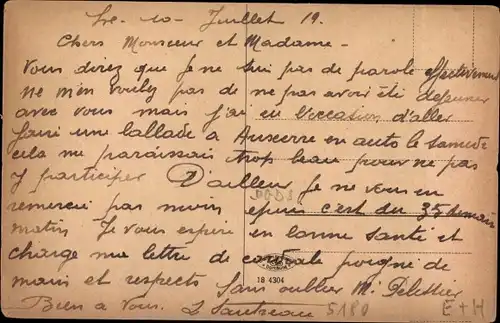 10 Juillet 19.
Chers Monsieur et Madame -
Vous direz que Je ne suis pas de parole effectivement
ne m'en voulez pas de ne pas avoir été dejeuner
avec vous mais j'ai eu l'occasion d'aller
faire une ballade a Auxerre en auto le samedi
cela me paraissait trop beau pour ne pas
y participer D'ailleurs Je ne vous en
remercie pas moins c'est du 35 demain
matin Je vous espère en bonne santé et
charge ma lettre de cordiale poignée de
mains et respects Sans oublier Mr Pelettier
Bien a Vous.
18 4304
5180
E + H